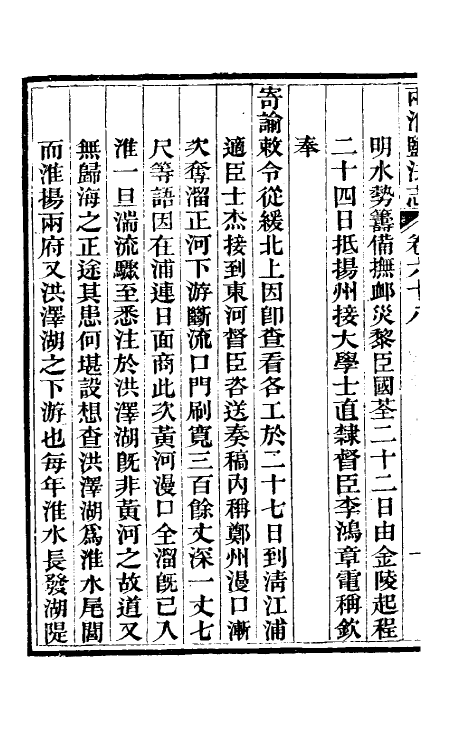 兩淮鹽法志 卷六十八
明水勢籌備撫卹災黎臣國荃二十二日由金陵起程
二十四日抵揚州接大學士直隸督臣李鴻章電稱欽
奉
寄諭敕令從緩北上因卽查看各工於二十七日到淸江浦
適臣士杰接到東河督臣咨送奏稿內稱鄭州漫口漸
次奪溜正河下游斷流口門刷寬三百餘丈深一丈七
尺等語因在浦連日面商此次黃河漫口全溜旣已入
淮一旦湍流驟至悉注於洪澤湖旣非黃河之故道又
無歸海之正途其患何堪設想查洪澤湖爲淮水尾閭
而淮揚兩府又洪澤湖之下游也每年淮水長發湖隄